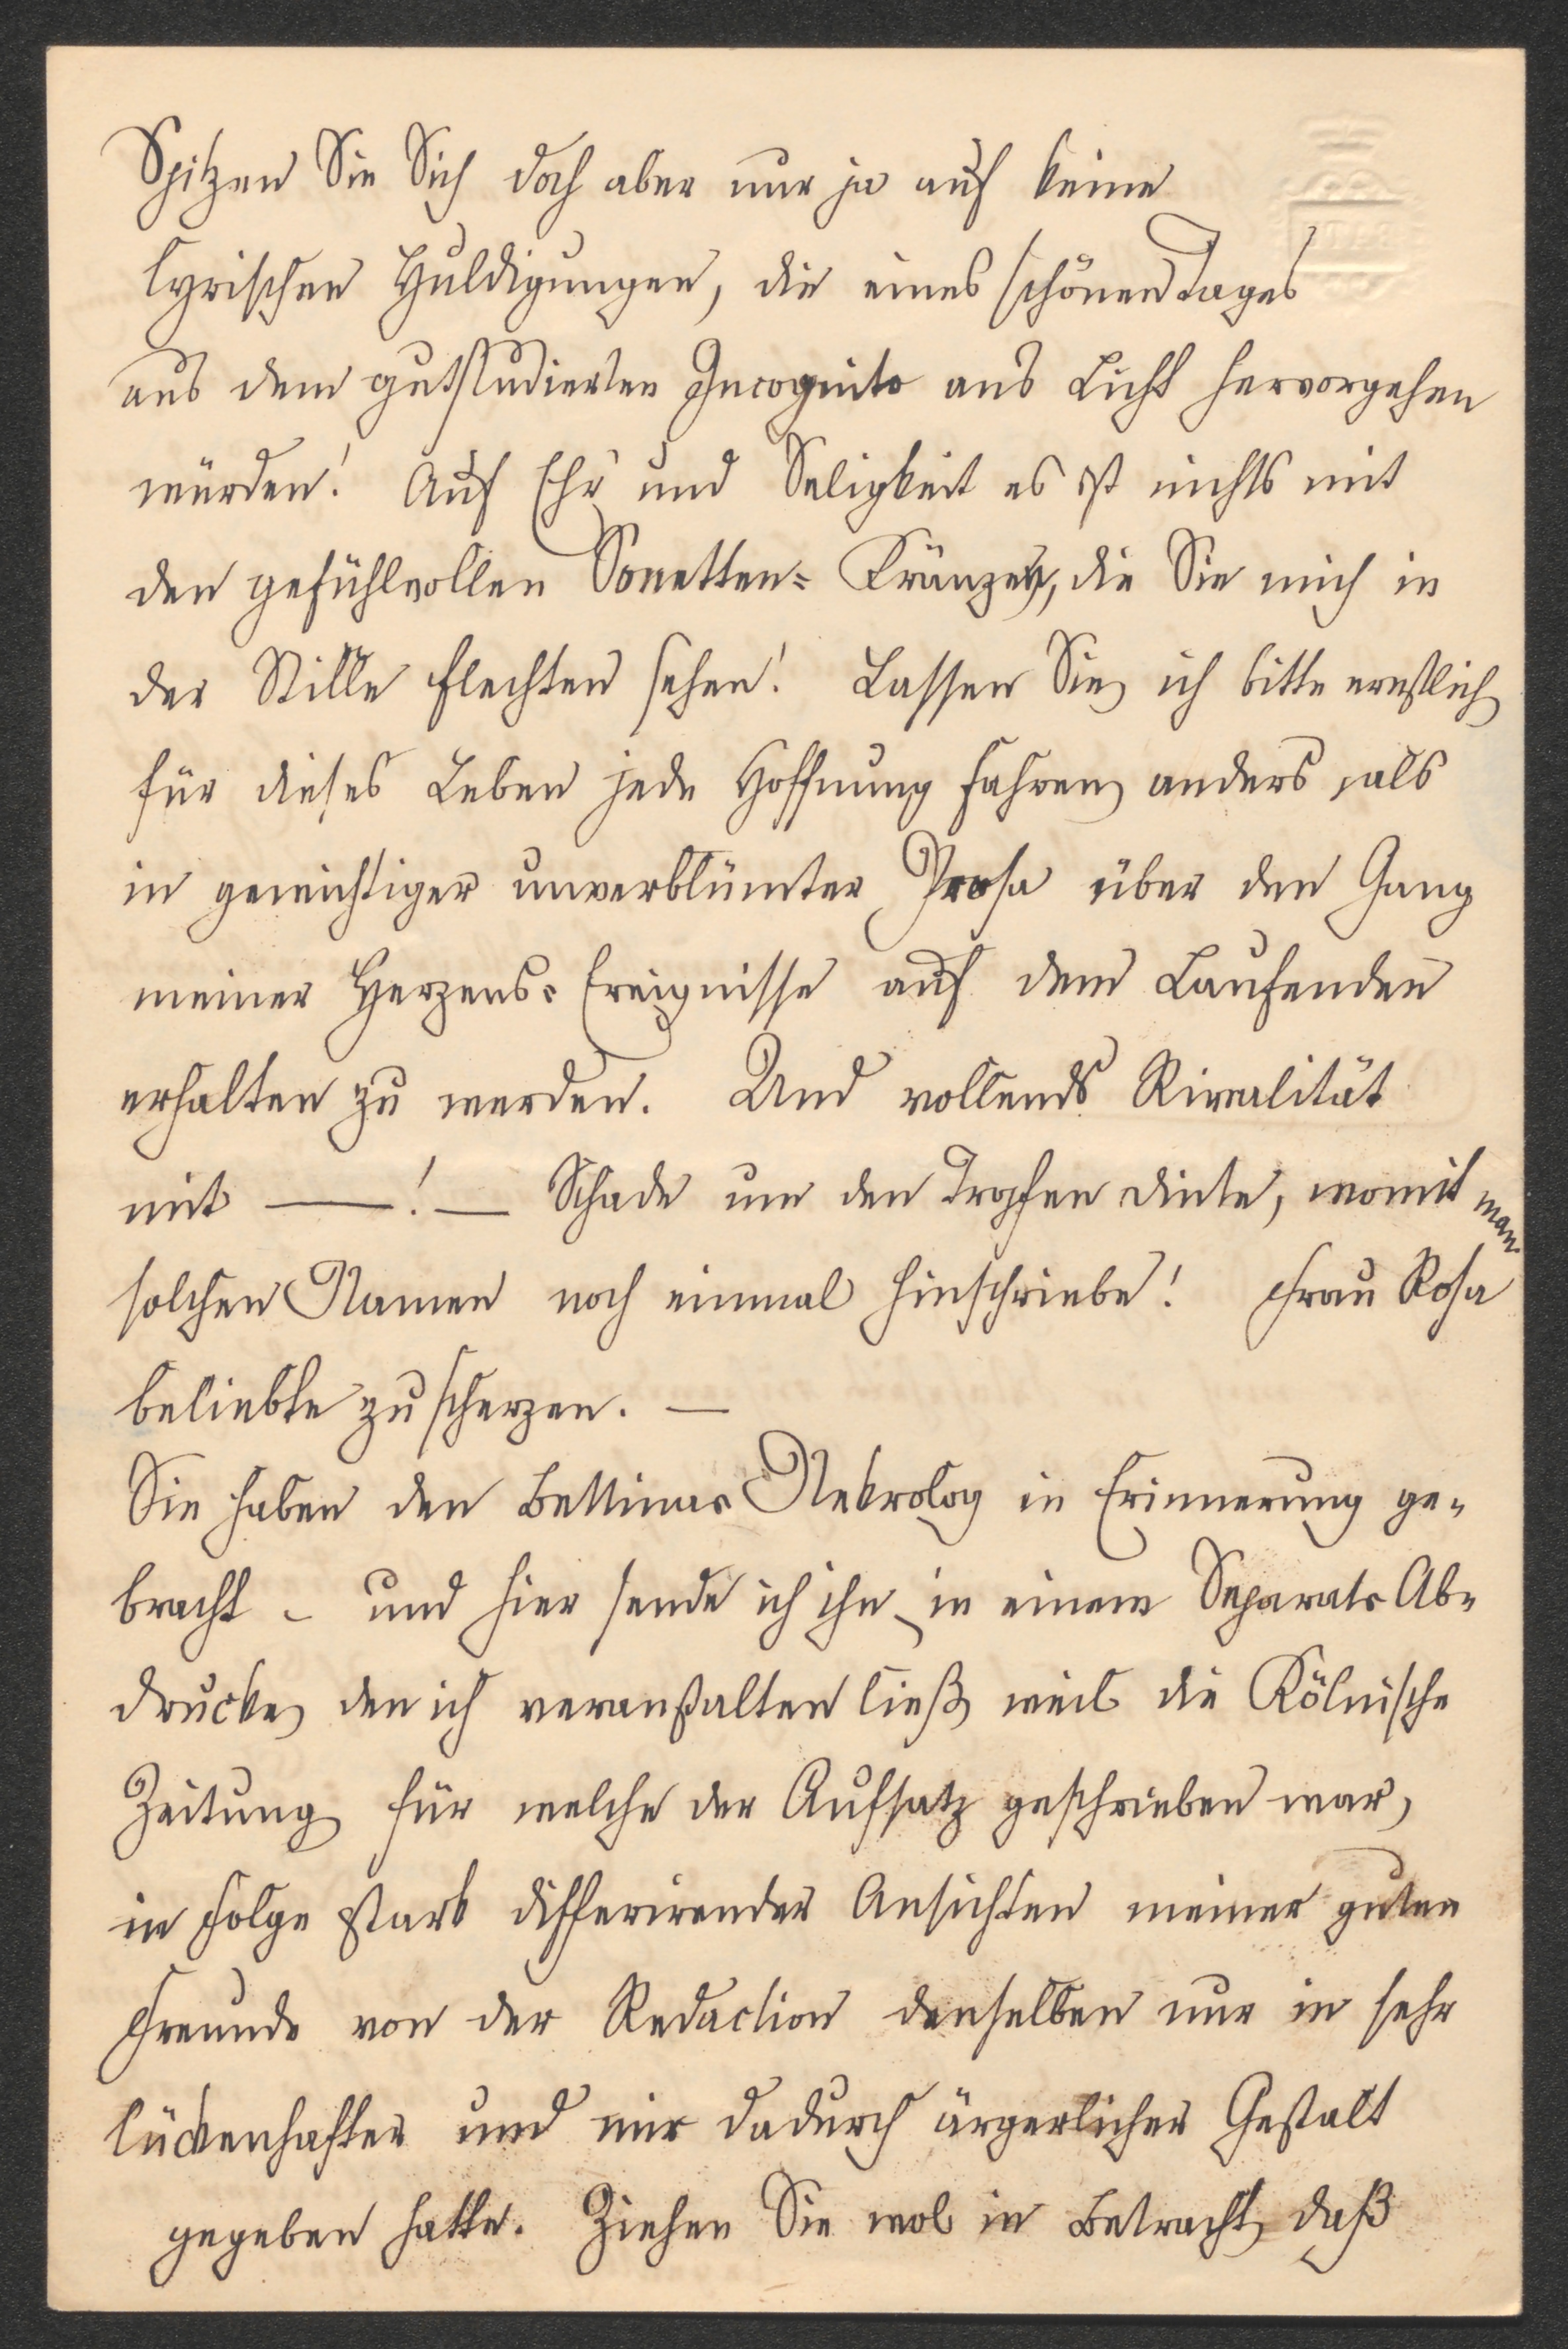 Spitzen Sie Sich doch aber nur ja auf keine
lyrischen Huldigungen, die eines schönen Tages
aus dem gutstudierten Incognito ans Licht hervorgehen
würden! Auf Ehr' und Seligkeit es ist nichts mit
den gefühlvollen Sonetten-Kränzen, die Sie mich in
der Stille flechten sehen! Lassen Sie, ich bitte ernstlich,
für dieses Leben jede Hoffnung fahren, anders, als
in gewichtiger unverblümter Prosa über den Gang
meiner Herzens-Ereignisse auf dem Laufenden
erhalten zu werden. Und vollends Rivalität
mit —! — Schade um den Tropfen Dinte, womit man
solchen Namen noch einmal hinschriebe! Frau Rosa
beliebte zu scherzen. —
Sie haben den Bettina-Nekrolog in Erinnerung ge-
bracht – und hier sende ich ihn, in einem Separat-Ab-
drucke, den ich veranstalten ließ, weil die Kölnische
Zeitung, für welche der Aufsatz geschrieben war,
in Folge stark differirender Ansichten meiner guten
Freunde von der Redaction denselben nur in sehr
lückenhafter und mir dadurch ärgerlicher Gestalt
gegeben hatte. Ziehen Sie wol in Betracht, daß